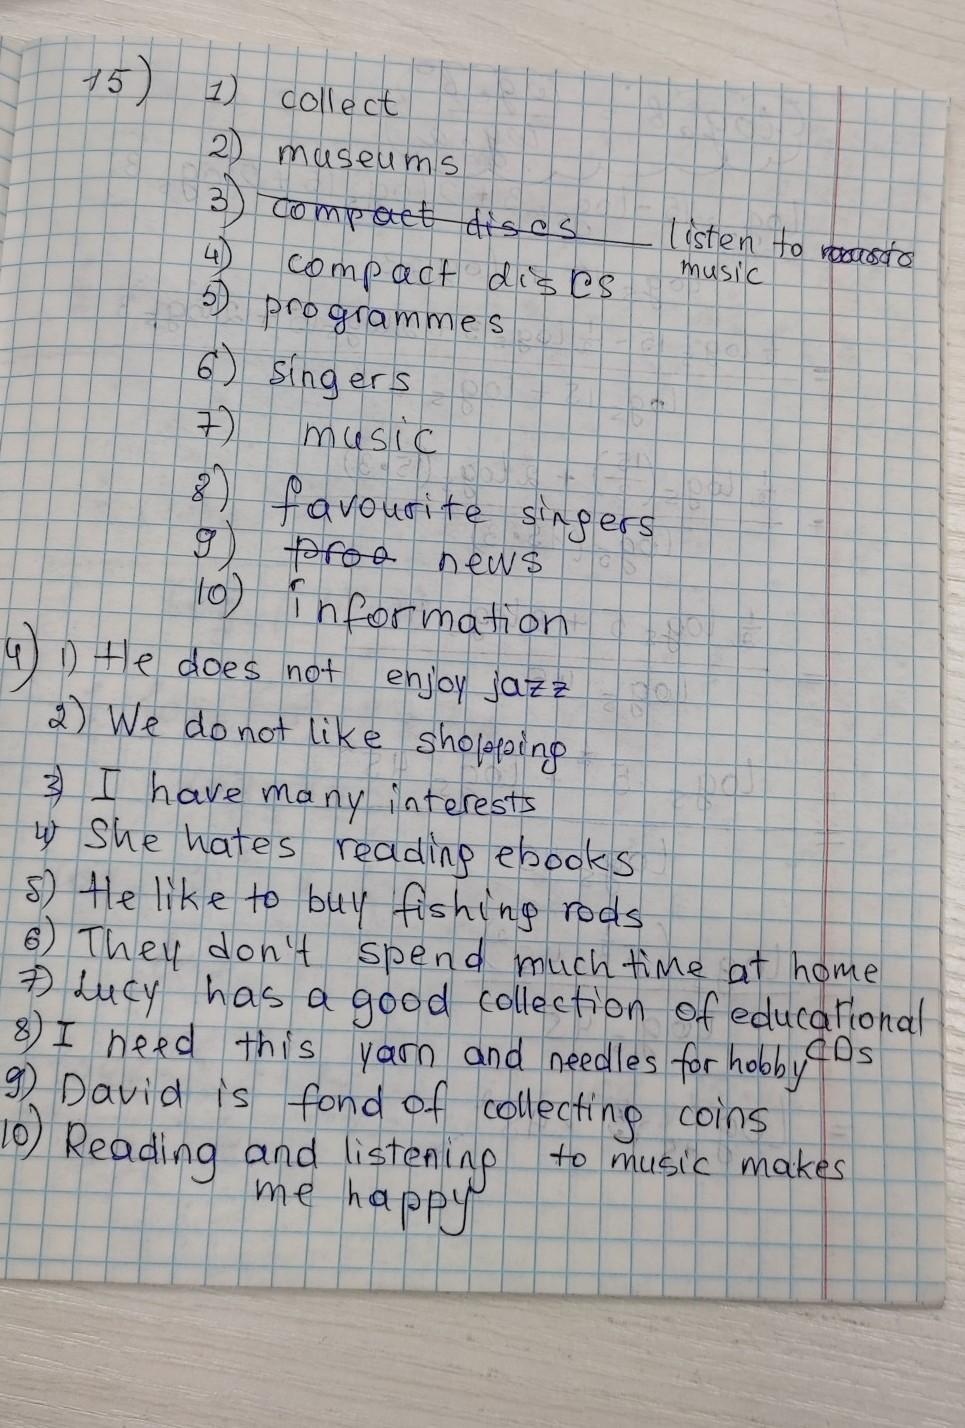 15) 1) collect
2) museums
3) compact discs listen to
music
4) compact discs
5) programmes
6) singers
7) music
8) favourite singers
9) proa news
10) information
4) 1) He does not enjoy jazz
2) We do not like shopping
3) I have many interests
4) She hates reading ebooks
5) He like to buy fishing rods
6) They don't spend much time at home
7) Lucy has a good collection of educational
CDs
8) I need this yarn and needles for hobby
9) David is fond of collecting coins
10) Reading and listening to music makes
me happy